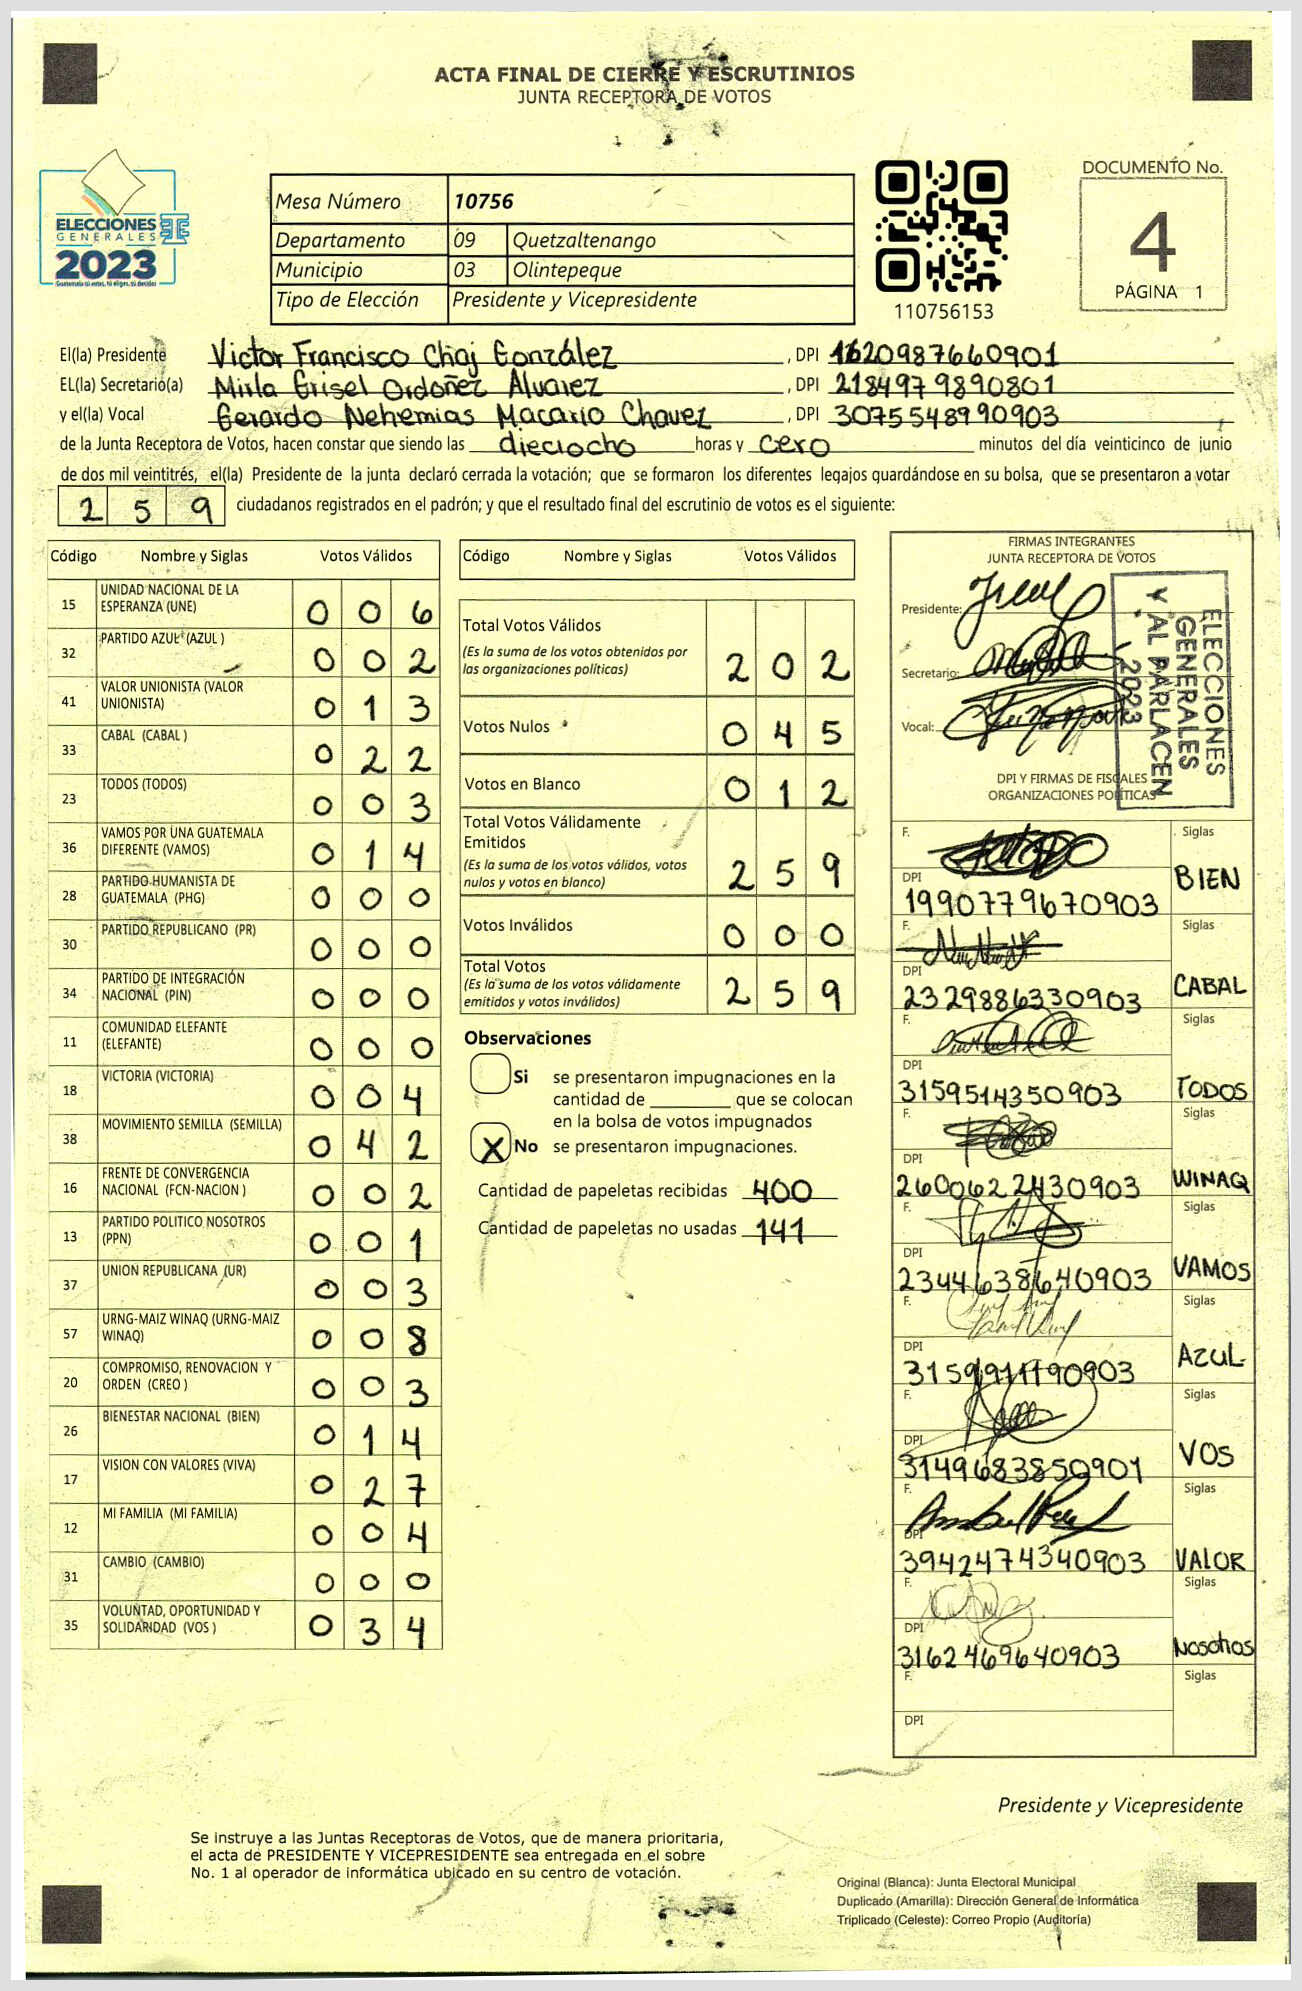 ACTA FINAL DE CIERRE Y ESCRUTINIOS
JUNTA RECEPTORA DE VOTOS
ELECCIONES
GENERALES
2023
Guatemala tú votas, tú eliges, tú decides
Mesa Número 10756
Departamento 09 Quetzaltenango
Municipio 03 Olintepeque
Tipo de Elección Presidente y Vicepresidente
110756153
DOCUMENTO No.
4
PÁGINA 1
El(la) Presidente Victor Francisco Chaj González , DPI 1620987660901
EL(la) Secretario(a) Mirla Grisel Ordoñez Alvarez , DPI 2184979890801
y el(la) Vocal Gerardo Nehemias Macario Chavez , DPI 3075548990903
de la Junta Receptora de Votos, hacen constar que siendo las dieciocho horas y cero minutos del día veinticinco de junio
de dos mil veintitrés, el(la) Presidente de la junta declaró cerrada la votación; que se formaron los diferentes legajos guardándose en su bolsa, que se presentaron a votar
259 ciudadanos registrados en el padrón; y que el resultado final del escrutinio de votos es el siguiente:
Código Nombre y Siglas Votos Válidos
15 UNIDAD NACIONAL DE LA ESPERANZA (UNE) 006
32 PARTIDO AZUL (AZUL ) 002
41 VALOR UNIONISTA (VALOR UNIONISTA) 013
33 CABAL (CABAL ) 022
23 TODOS (TODOS) 003
36 VAMOS POR UNA GUATEMALA DIFERENTE (VAMOS) 014
28 PARTIDO HUMANISTA DE GUATEMALA (PHG) 000
30 PARTIDO REPUBLICANO (PR) 000
34 PARTIDO DE INTEGRACIÓN NACIONAL (PIN) 000
11 COMUNIDAD ELEFANTE (ELEFANTE) 000
18 VICTORIA (VICTORIA) 004
38 MOVIMIENTO SEMILLA (SEMILLA) 042
16 FRENTE DE CONVERGENCIA NACIONAL (FCN-NACION ) 002
13 PARTIDO POLITICO NOSOTROS (PPN) 001
37 UNION REPUBLICANA (UR) 003
57 URNG-MAIZ WINAQ (URNG-MAIZ WINAQ) 008
20 COMPROMISO, RENOVACION Y ORDEN (CREO ) 003
26 BIENESTAR NACIONAL (BIEN) 014
17 VISION CON VALORES (VIVA) 027
12 MI FAMILIA (MI FAMILIA) 004
31 CAMBIO (CAMBIO) 000
35 VOLUNTAD, OPORTUNIDAD Y SOLIDARIDAD (VOS ) 034
Código Nombre y Siglas Votos Válidos
Total Votos Válidos
(Es la suma de los votos obtenidos por
las organizaciones políticas) 202
Votos Nulos 045
Votos en Blanco 012
Total Votos Válidamente
Emitidos
(Es la suma de los votos válidos, votos
nulos y votos en blanco) 259
Votos Inválidos 000
Total Votos
(Es la suma de los votos válidamente
emitidos y votos inválidos) 259
Observaciones
Si se presentaron impugnaciones en la
cantidad de ________ que se colocan
en la bolsa de votos impugnados
X No se presentaron impugnaciones.
Cantidad de papeletas recibidas 400
Cantidad de papeletas no usadas 141
FIRMAS INTEGRANTES
JUNTA RECEPTORA DE VOTOS
Presidente:
Secretario:
Vocal:
ELECCIONES
GENERALES
Y AL PARLACEN
2023
DPI Y FIRMAS DE FISCALES
ORGANIZACIONES POLÍTICAS
F. Siglas
DPI 1990779670903 BIEN
F. Siglas
DPI 2329886330903 CABAL
F. Siglas
DPI 3159514350903 TODOS
F. Siglas
DPI 2600622430903 WINAQ
F. Siglas
DPI 2344638640903 VAMOS
F. Siglas
DPI AZUL
F. Siglas
DPI 3149683850901 VOS
F. Siglas
DPI 3942474340903 VALOR
F. Siglas
DPI 3162469640903 Nosotros
F. Siglas
DPI
Presidente y Vicepresidente
Se instruye a las Juntas Receptoras de Votos, que de manera prioritaria,
el acta de PRESIDENTE Y VICEPRESIDENTE sea entregada en el sobre
No. 1 al operador de informática ubicado en su centro de votación.
Original (Blanca): Junta Electoral Municipal
Duplicado (Amarilla): Dirección General de Informática
Triplicado (Celeste): Correo Propio (Auditoría)